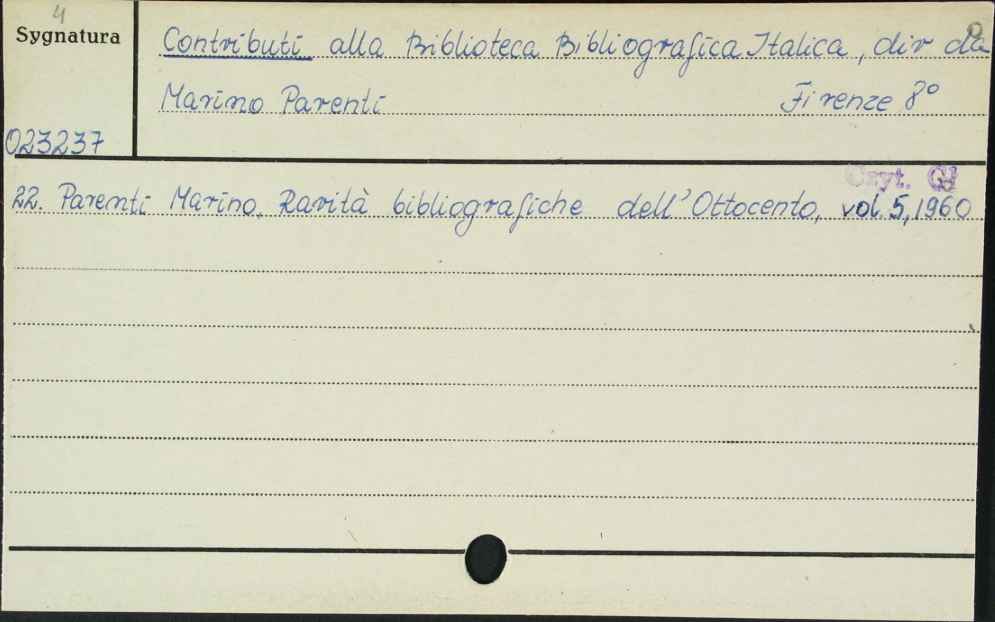 4
Sygnatura
Contributi alla Biblioteca Bibliografica Italica, dir da
Marino Parenti Firenze 8°
023237
Czyt. Gł
22. Parenti Marino. Rarità bibliografiche dell'Ottocento, vol. 5, 1960